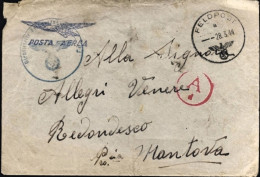 POSTA AEREA
FELDPOST
-28.5.44
Alla Signora
A
Allegri Venere
Redondesco
Mantova